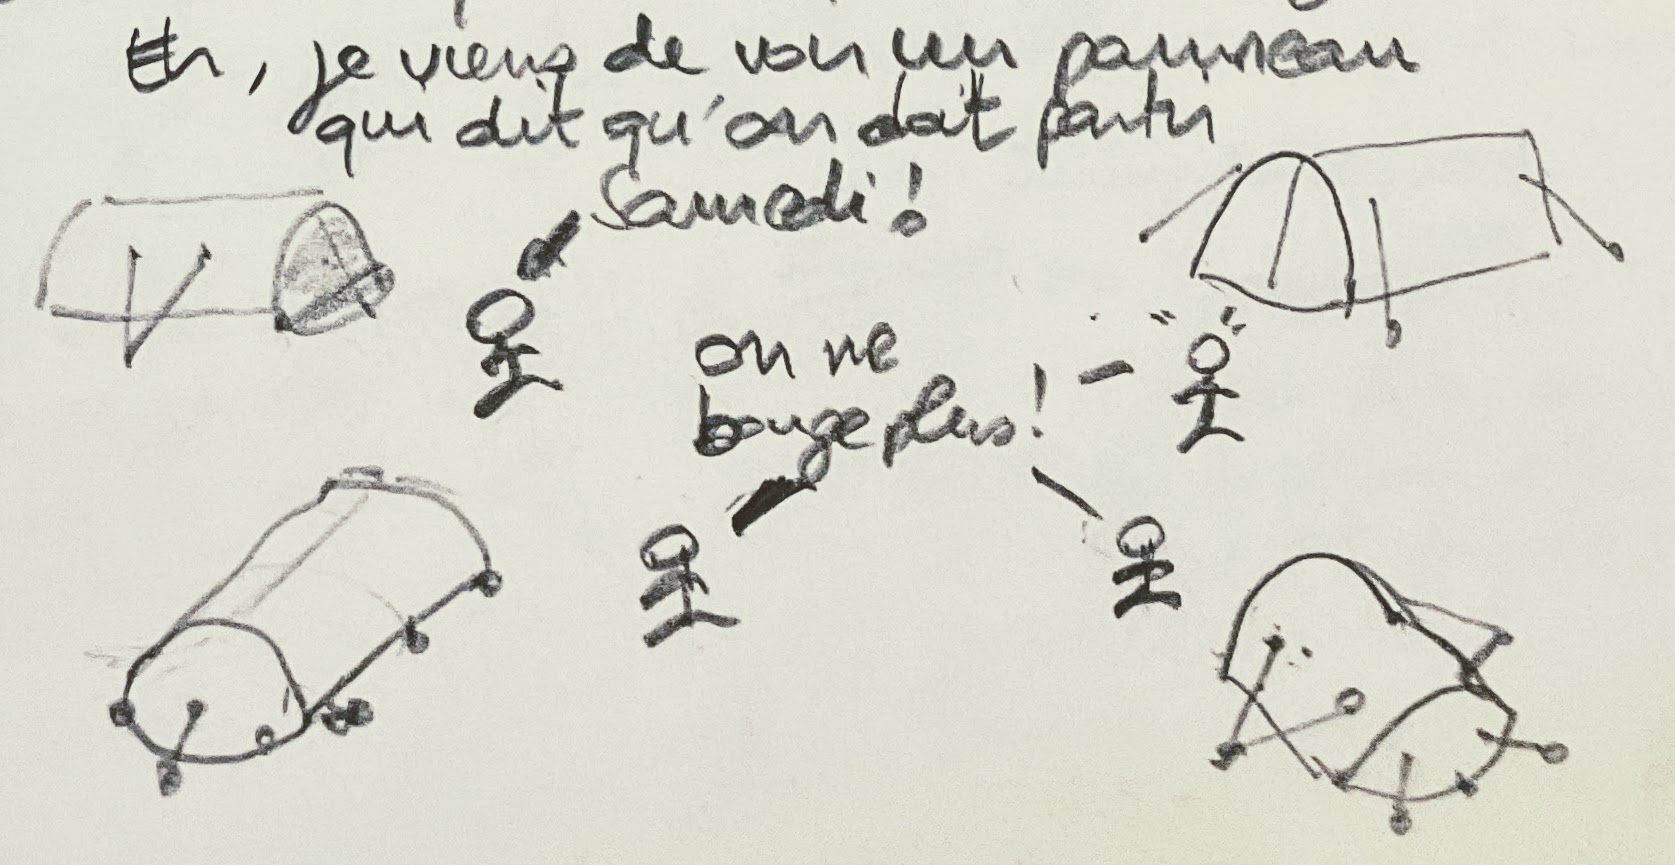 Eh, je viens de voir un panneau
qui dit qu'on doit partir
Samedi !
on ne
bouge plus !